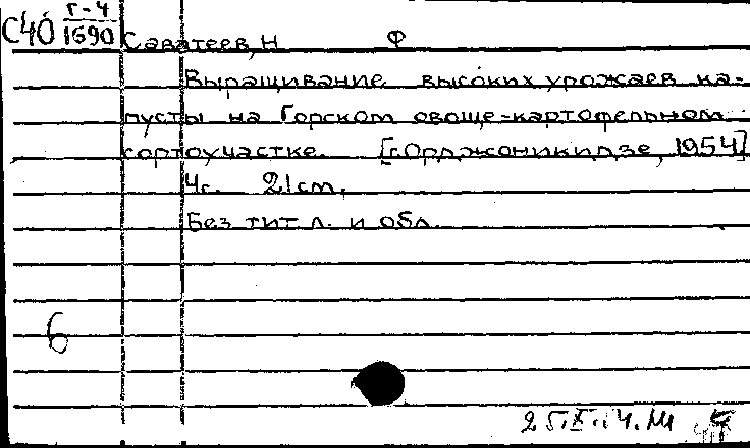 С40 Г-4
1690 Саватеев, Н Ф
Выращивание высоких урожаев ка-
пусты на Горском овоще-картофельном
сортоучастке. [г. Орджоникидзе, 1954]
4с. 21 см.
Без тит л. и обл.
6